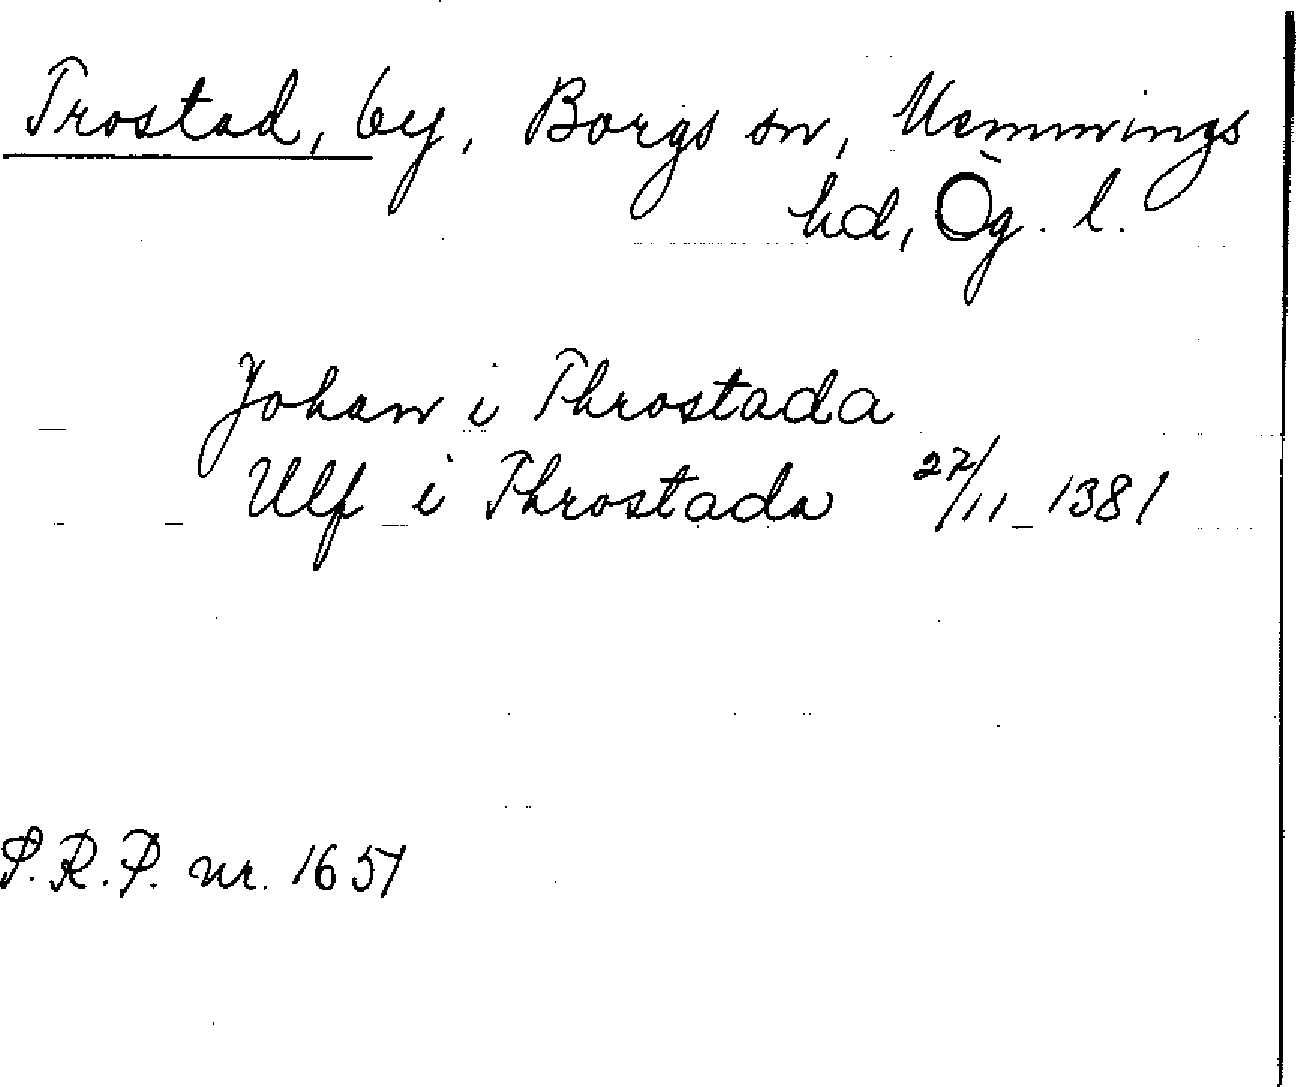 Trostad, by, Borgs sn, Memmings
hd, Ög. l.
Johan i Throstada
Ulf i Throstada 27/11 1381
S.R.P. nr. 1651